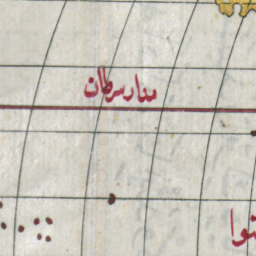 مدار سرطان
نوا